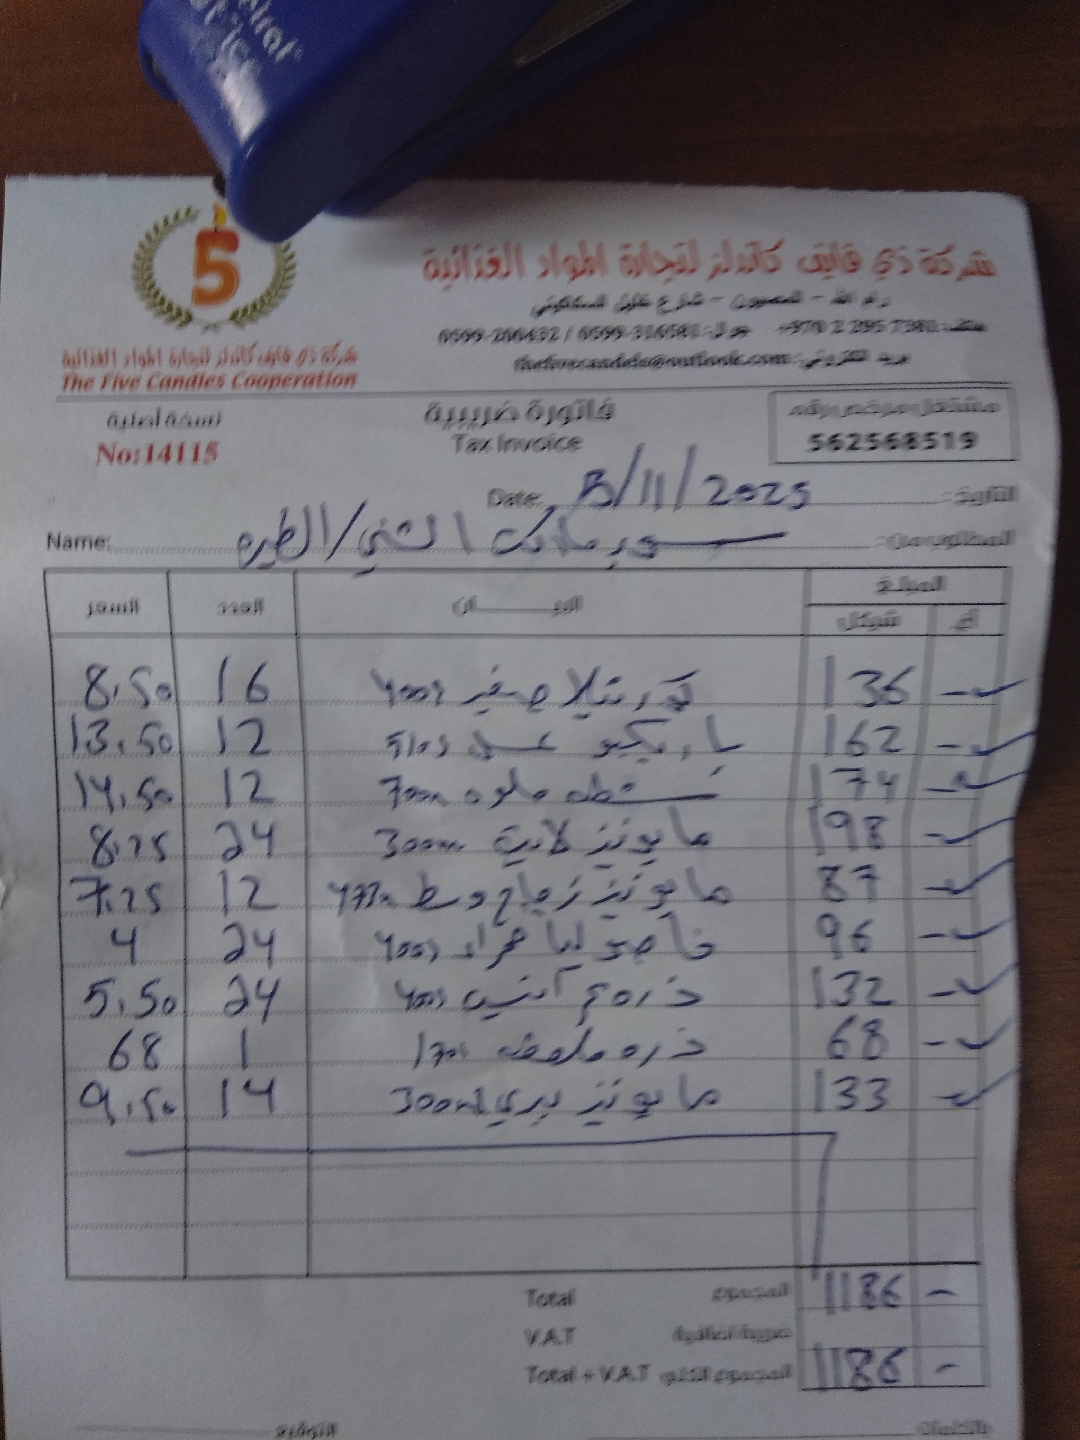 شركة ذي فايف كاندلز لتجارة المواد الغذائية
رام الله - المصيون - شارع خليل السكاكيني
هاتف: 7381 295 2 970+ جوال: 0599-316581 / 0599-200432
بريد الكتروني: thefivecandels@outlook.com
شركة ذي فايف كاندلز لتجارة المواد الغذائية
The Five Candles Cooperation
مشتغل مرخص رقم
562568519
فاتورة ضريبية
Tax Invoice
نسخة أصلية
No:14115
التاريخ: /11/2025 Date:
المطلوب من: سوبرماركت الشني/الطيره Name:
المبلغ البيـــــــان العدد السعر
أغ شيكل
136 - صغير 400g 16 8.50
162 - باربكيو عسل 510g 12 13.50
174 - حلوه 700m 12 14.50
198 - مايونيز 300m 24 8.25
87 - مايونيز زجاج وسط 12 7.25
96 - فاصوليا حمراء 400g 24 4
132 - ذره 400g 24 5.50
68 - ذره 1 68
133 - مايونيز بري 300ml 14 9.50
Total المجموع 1186 -
V.A.T ضريبة اضافية
Total + V.A.T المجموع الكلي 1186 -
التوقيع